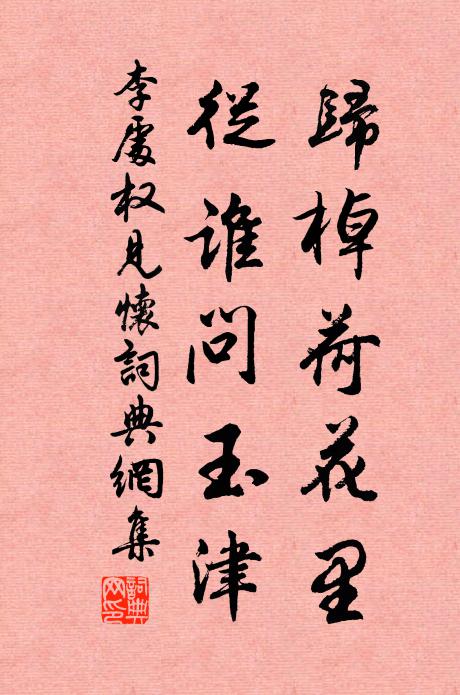 歸棹荷花里
從誰問玉津
李處权見懷詞典網集
詞典網印